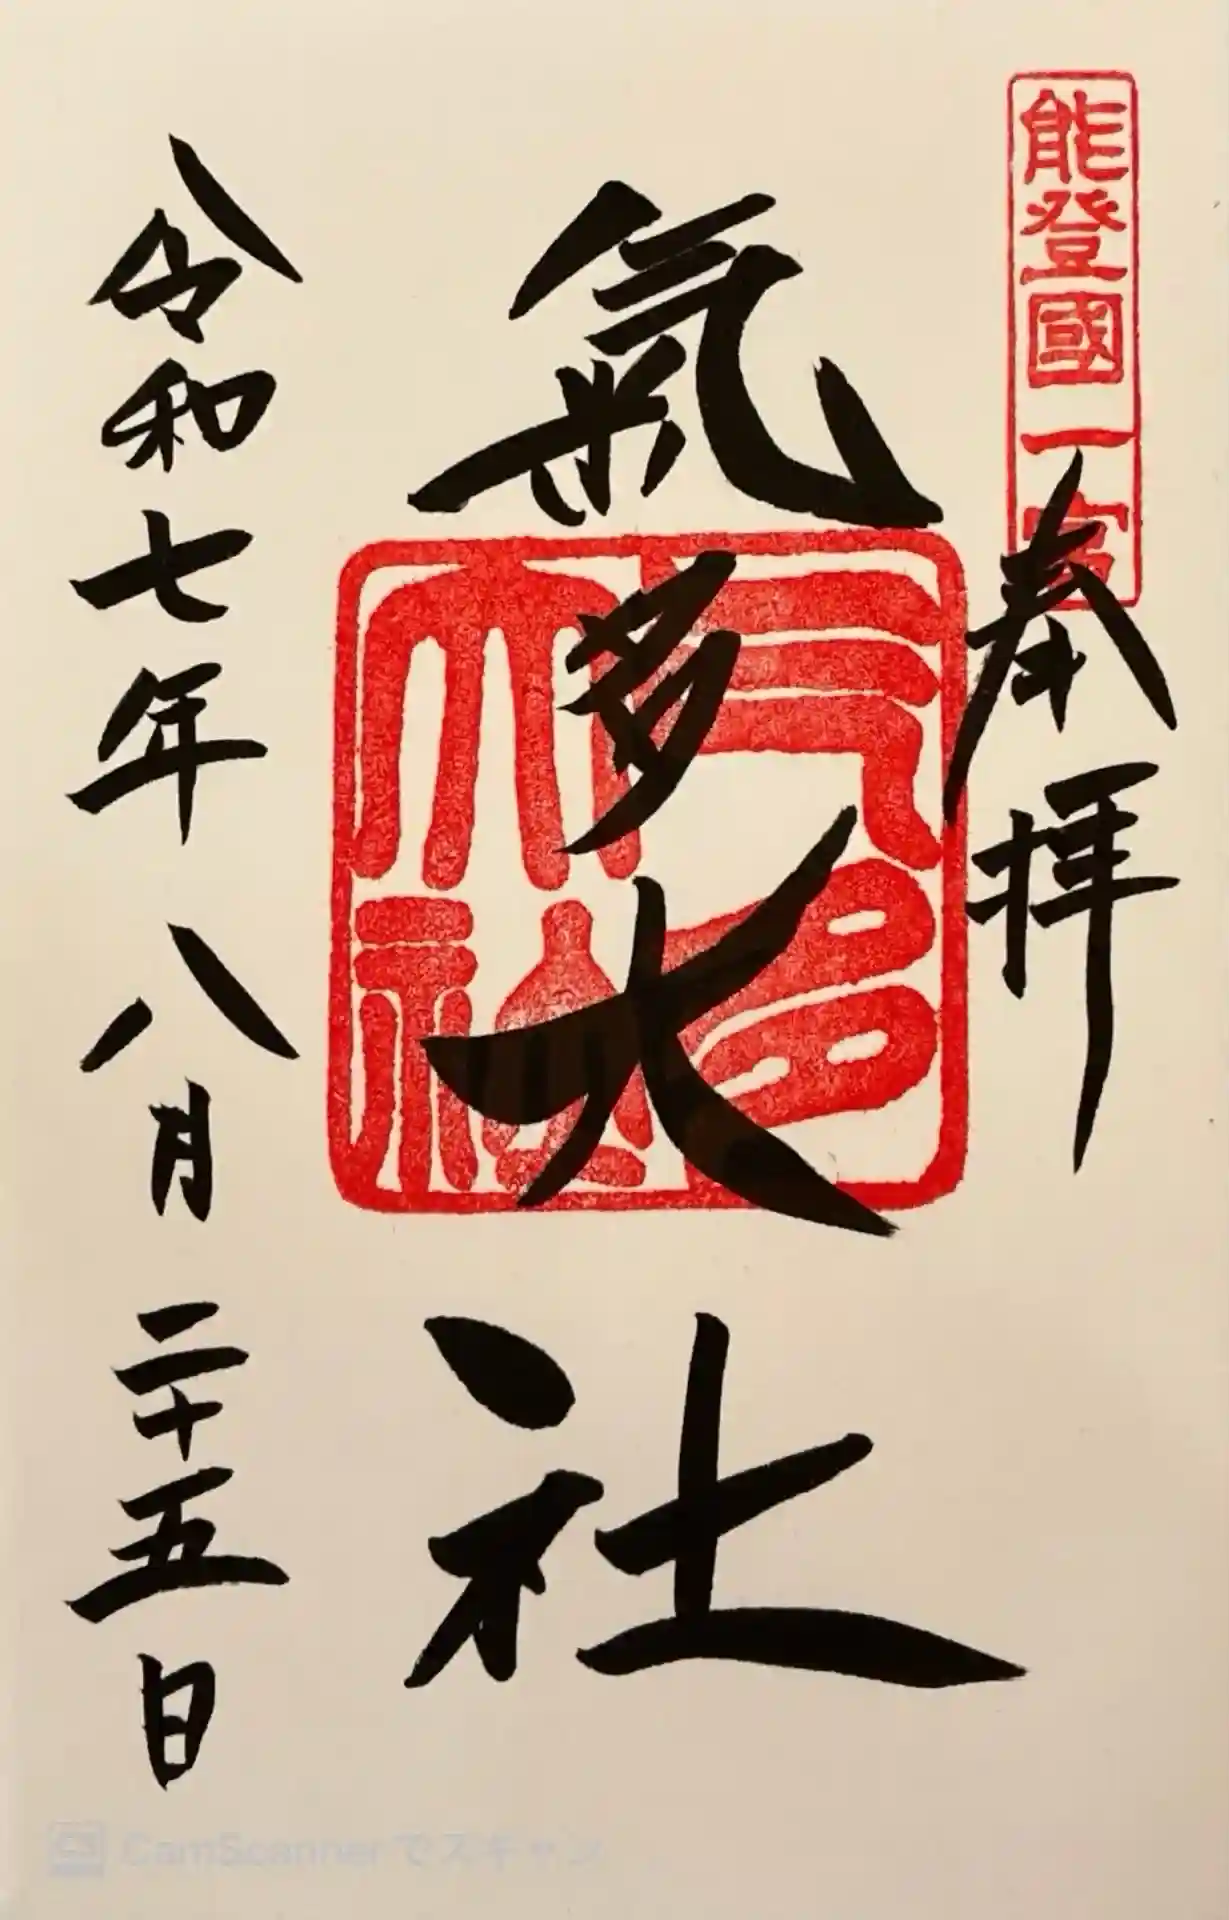 能登國一宮
奉拝
氣多大社
気多大社
令和七年八月二十五日
CamScannerでスキャン